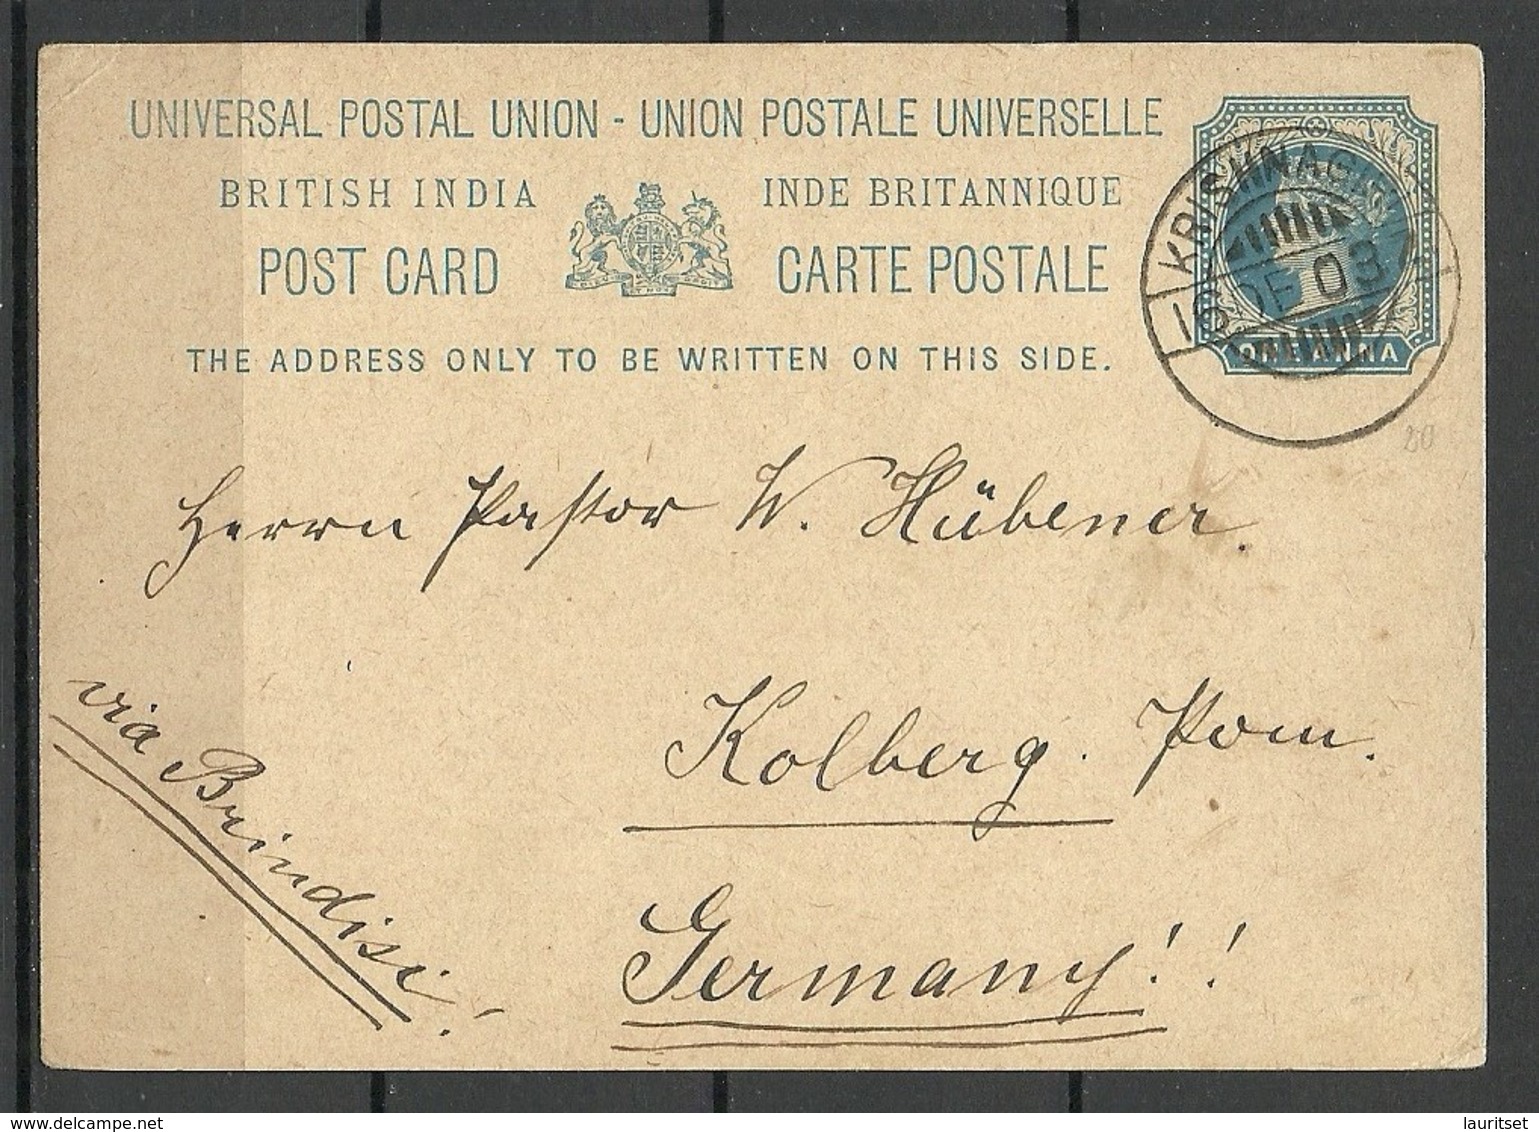 UNIVERSAL POSTAL UNION - UNION POSTALE UNIVERSELLE
BRITISH INDIA INDE BRITANNIQUE
POST CARD CARTE POSTALE
THE ADDRESS ONLY TO BE WRITTEN ON THIS SIDE.
ONE ANNA
KRISHNAGIRI
DE 03
20
Herrn Pastor W. Hübener.
Kolberg. Pom.
Germany!!
via Brindisi!
www.delcampe.net
lauritset